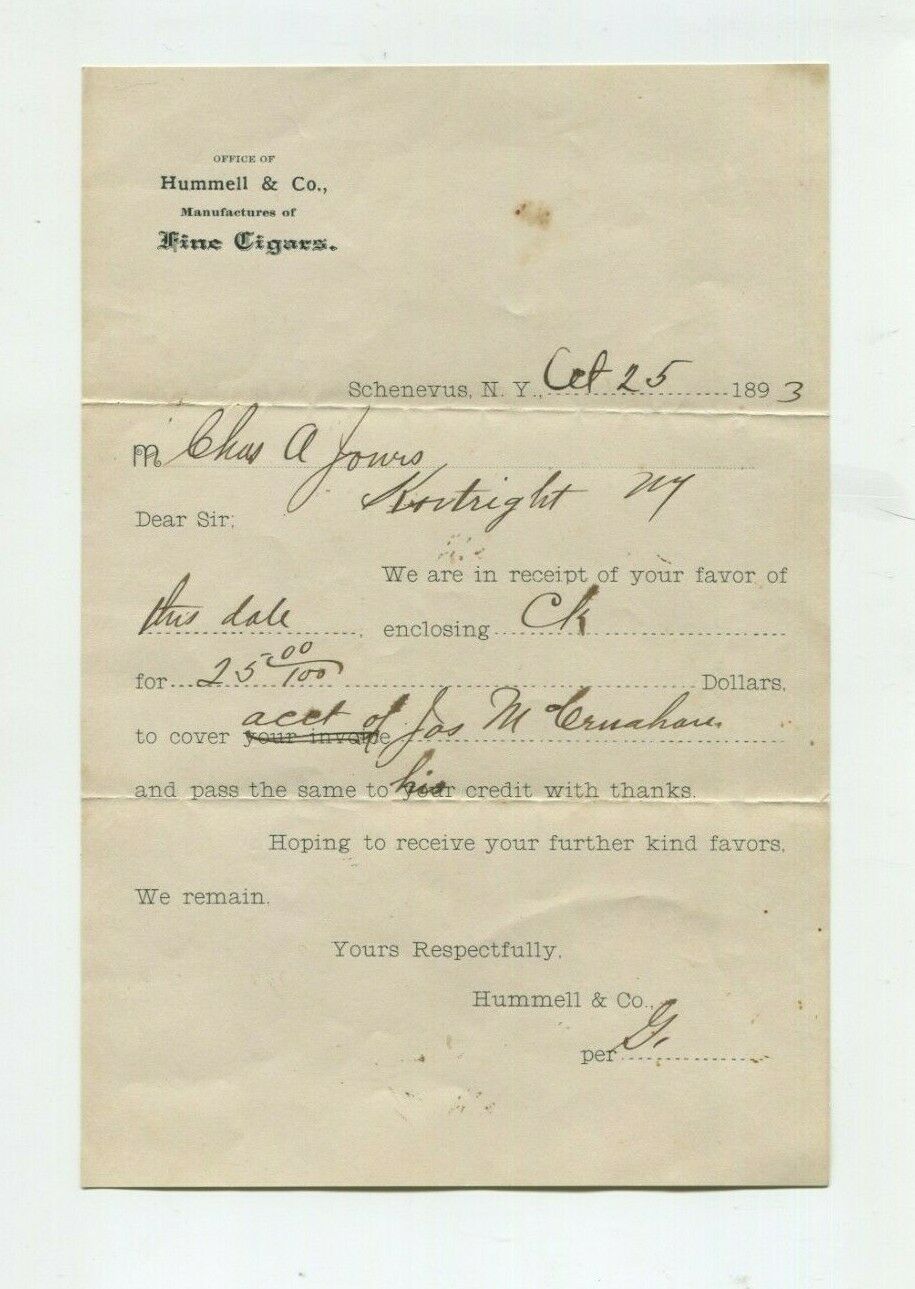 OFFICE OF
Hummell & Co.,
Manufactures of
Fine Cigars.
Schenevus, N. Y., Oct 25 1893
M Chas A
Kortright NY
Dear Sir;
We are in receipt of your favor of
this date, enclosing Ck
for 25 00/100 Dollars,
to cover your invoice acct of Jas
and pass the same to your his credit with thanks.
Hoping to receive your further kind favors,
We remain,
Yours Respectfully,
Hummell & Co.,
per G.